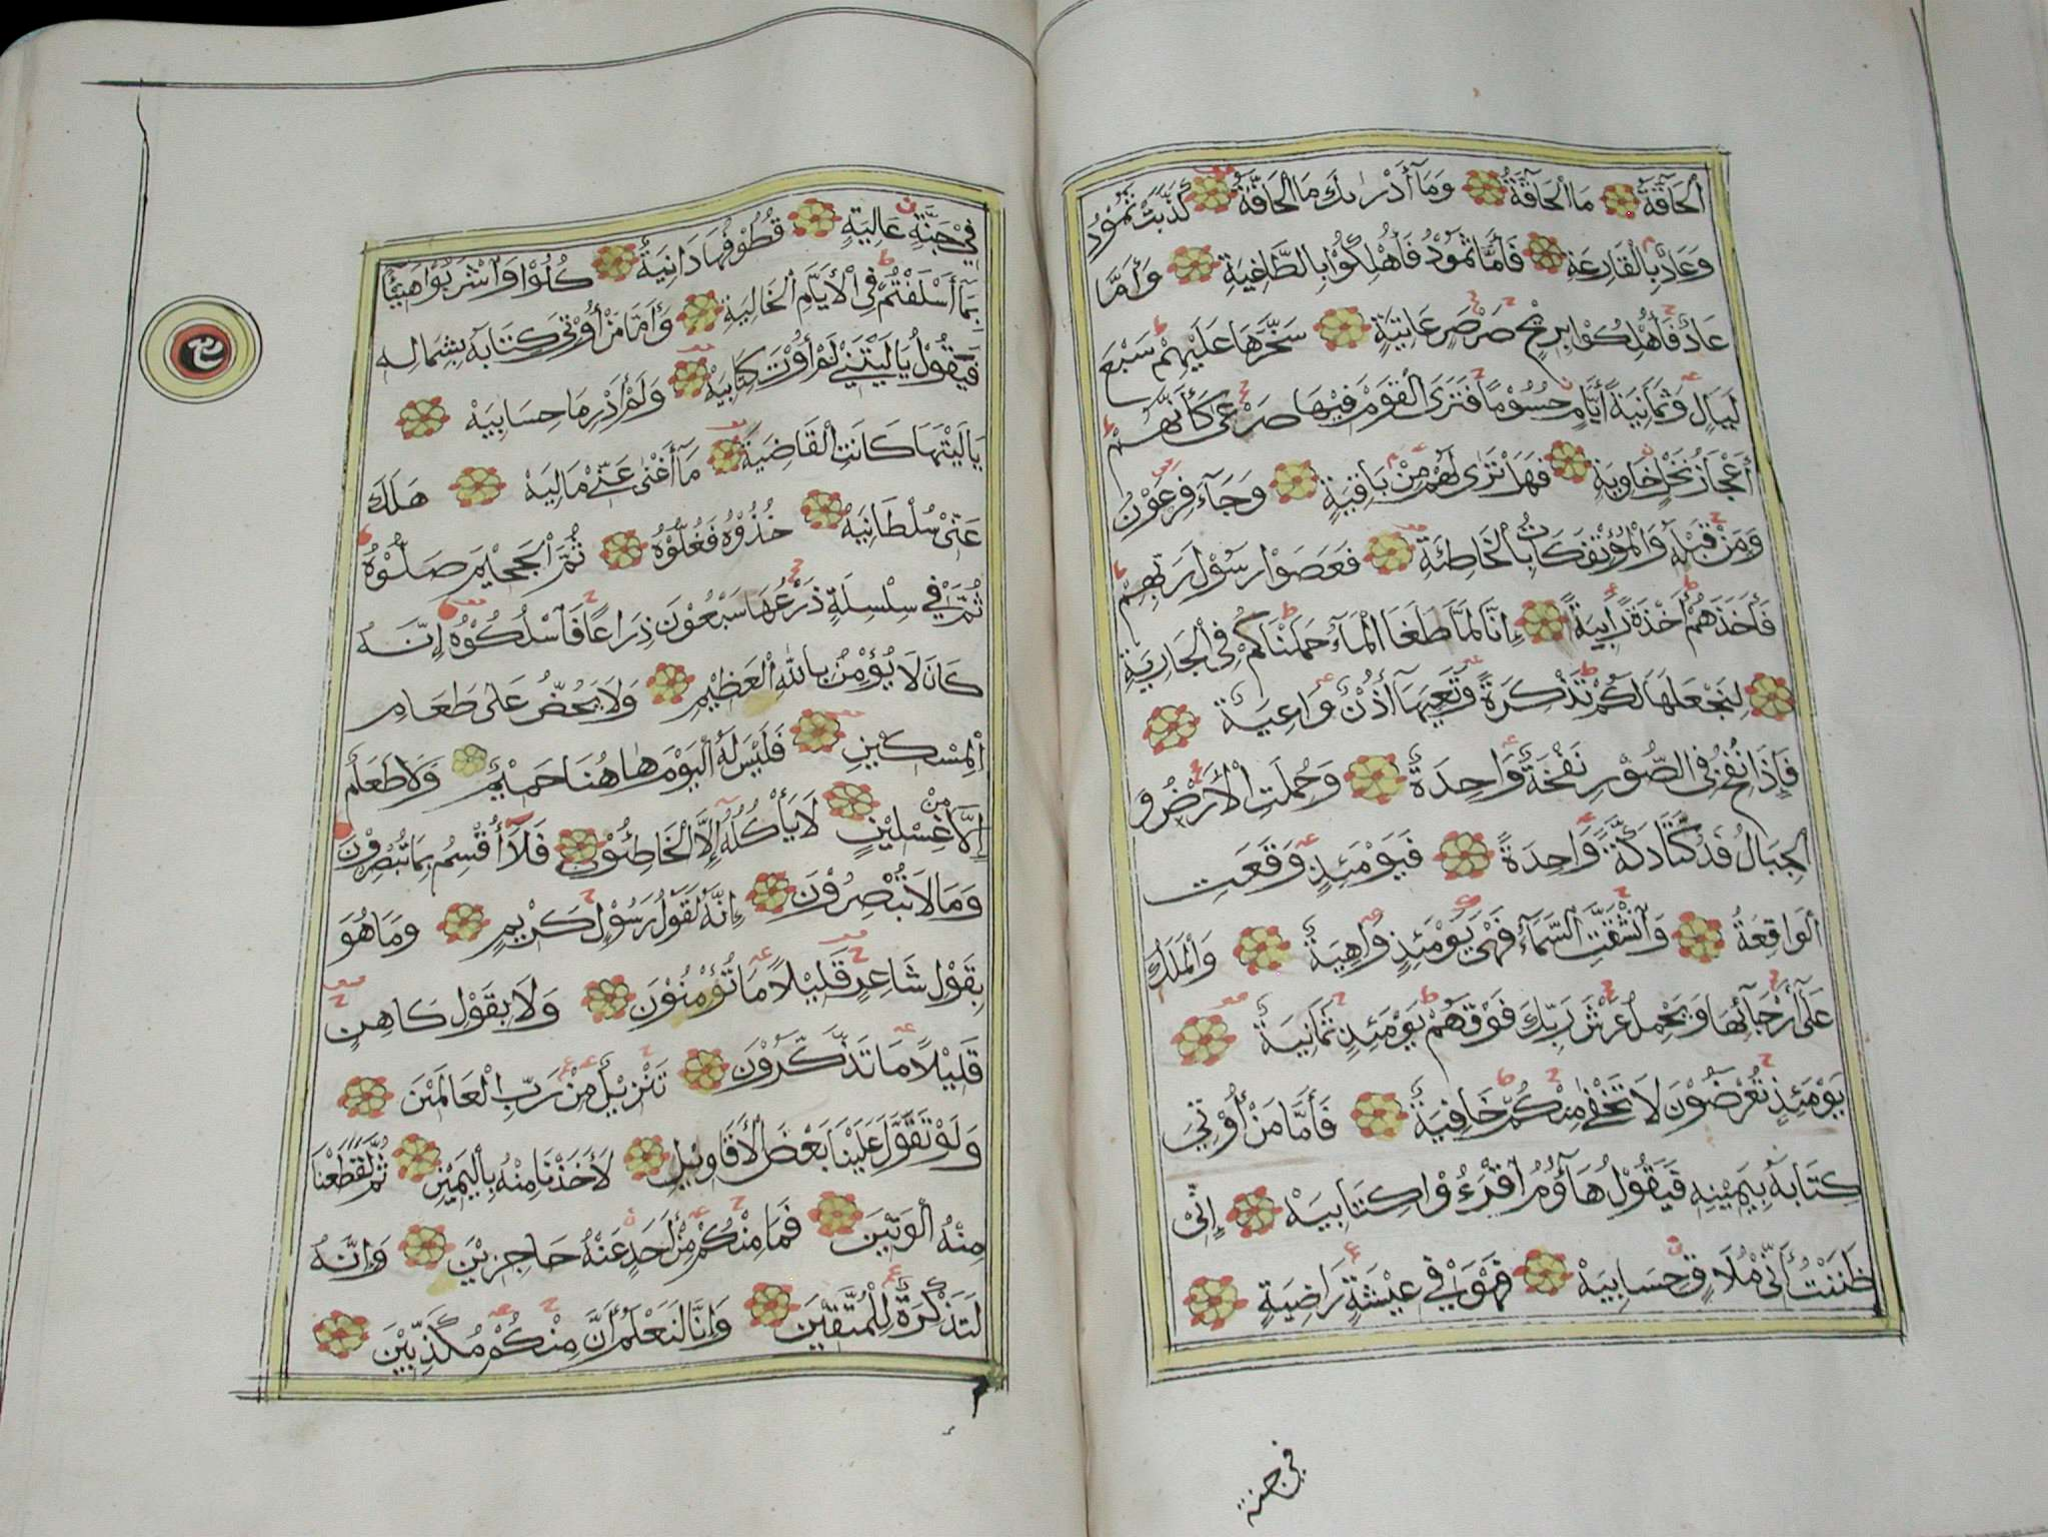 اَلْحَاقَّةُ مَا الْحَاقَّةُ وَمَا أَدْرٰىكَ مَا الْحَاقَّةُ كَذَّبَتْ ثَمُوْدُ
وَعَادٌ بِالْقَارِعَةِ فَأَمَّا ثَمُوْدُ فَأُهْلِكُوْا بِالطَّاغِيَةِ وَأَمَّا
عَادٌ فَأُهْلِكُوْا بِرِيْحٍ صَرْصَرٍ عَاتِيَةٍ سَخَّرَهَا عَلَيْهِمْ سَبْعَ
لَيَالٍ وَثَمَانِيَةَ أَيَّامٍ حُسُوْمًا فَتَرَى الْقَوْمَ فِيْهَا صَرْعٰى كَأَنَّهُمْ
أَعْجَازُ نَخْلٍ خَاوِيَةٍ فَهَلْ تَرٰى لَهُمْ مِنْ بَاقِيَةٍ وَجَآءَ فِرْعَوْنُ
وَمَنْ قَبْلَهٗ وَالْمُؤْتَفِكَاتُ بِالْخَاطِئَةِ فَعَصَوْا رَسُوْلَ رَبِّهِمْ
فَأَخَذَهُمْ أَخْذَةً رَابِيَةً إِنَّا لَمَّا طَغَا الْمَآءُ حَمَلْنَاكُمْ فِي الْجَارِيَةِ
لِنَجْعَلَهَا لَكُمْ تَذْكِرَةً وَتَعِيَهَآ أُذُنٌ وَاعِيَةٌ
فَإِذَا نُفِخَ فِي الصُّوْرِ نَفْخَةٌ وَاحِدَةٌ وَحُمِلَتِ الْأَرْضُ وَ
الْجِبَالُ فَدُكَّتَا دَكَّةً وَاحِدَةً فَيَوْمَئِذٍ وَقَعَتِ
الْوَاقِعَةُ وَانْشَقَّتِ السَّمَآءُ فَهِيَ يَوْمَئِذٍ وَاهِيَةٌ وَالْمَلَكُ
عَلٰٓى أَرْجَآئِهَا وَيَحْمِلُ عَرْشَ رَبِّكَ فَوْقَهُمْ يَوْمَئِذٍ ثَمَانِيَةٌ
يَوْمَئِذٍ تُعْرَضُوْنَ لَا تَخْفٰى مِنْكُمْ خَافِيَةٌ فَأَمَّا مَنْ أُوْتِيَ
كِتَابَهٗ بِيَمِيْنِهٖ فَيَقُوْلُ هَآؤُمُ اقْرَءُوْا كِتَابِيَهْ إِنِّيْ
ظَنَنْتُ أَنِّيْ مُلَاقٍ حِسَابِيَهْ فَهُوَ فِيْ عِيْشَةٍ رَاضِيَةٍ
في جنة
فِيْ جَنَّةٍ عَالِيَةٍ قُطُوْفُهَا دَانِيَةٌ كُلُوْا وَاشْرَبُوْا هَنِيْئًا
بِمَآ أَسْلَفْتُمْ فِي الْأَيَّامِ الْخَالِيَةِ وَأَمَّا مَنْ أُوْتِيَ كِتَابَهٗ بِشِمَالِهٖ
فَيَقُوْلُ يَالَيْتَنِيْ لَمْ أُوْتَ كِتَابِيَهْ وَلَمْ أَدْرِ مَا حِسَابِيَهْ
يَالَيْتَهَا كَانَتِ الْقَاضِيَةَ مَآ أَغْنٰى عَنِّيْ مَالِيَهْ هَلَكَ
عَنِّيْ سُلْطَانِيَهْ خُذُوْهُ فَغُلُّوْهُ ثُمَّ الْجَحِيْمَ صَلُّوْهُ
ثُمَّ فِيْ سِلْسِلَةٍ ذَرْعُهَا سَبْعُوْنَ ذِرَاعًا فَاسْلُكُوْهُ إِنَّهٗ
كَانَ لَا يُؤْمِنُ بِاللّٰهِ الْعَظِيْمِ وَلَا يَحُضُّ عَلٰى طَعَامِ
الْمِسْكِيْنِ فَلَيْسَ لَهُ الْيَوْمَ هَاهُنَا حَمِيْمٌ وَلَا طَعَامٌ
إِلَّا مِنْ غِسْلِيْنٍ لَا يَأْكُلُهٗٓ إِلَّا الْخَاطِئُوْنَ فَلَآ أُقْسِمُ بِمَا تُبْصِرُوْنَ
وَمَا لَا تُبْصِرُوْنَ إِنَّهٗ لَقَوْلُ رَسُوْلٍ كَرِيْمٍ وَمَا هُوَ
بِقَوْلِ شَاعِرٍ قَلِيْلًا مَا تُؤْمِنُوْنَ وَلَا بِقَوْلِ كَاهِنٍ
قَلِيْلًا مَا تَذَكَّرُوْنَ تَنْزِيْلٌ مِنْ رَبِّ الْعَالَمِيْنَ
وَلَوْ تَقَوَّلَ عَلَيْنَا بَعْضَ الْأَقَاوِيْلِ لَأَخَذْنَا مِنْهُ بِالْيَمِيْنِ ثُمَّ لَقَطَعْنَا
مِنْهُ الْوَتِيْنَ فَمَا مِنْكُمْ مِنْ أَحَدٍ عَنْهُ حَاجِزِيْنَ وَإِنَّهٗ
لَتَذْكِرَةٌ لِلْمُتَّقِيْنَ وَإِنَّا لَنَعْلَمُ أَنَّ مِنْكُمْ مُكَذِّبِيْنَ